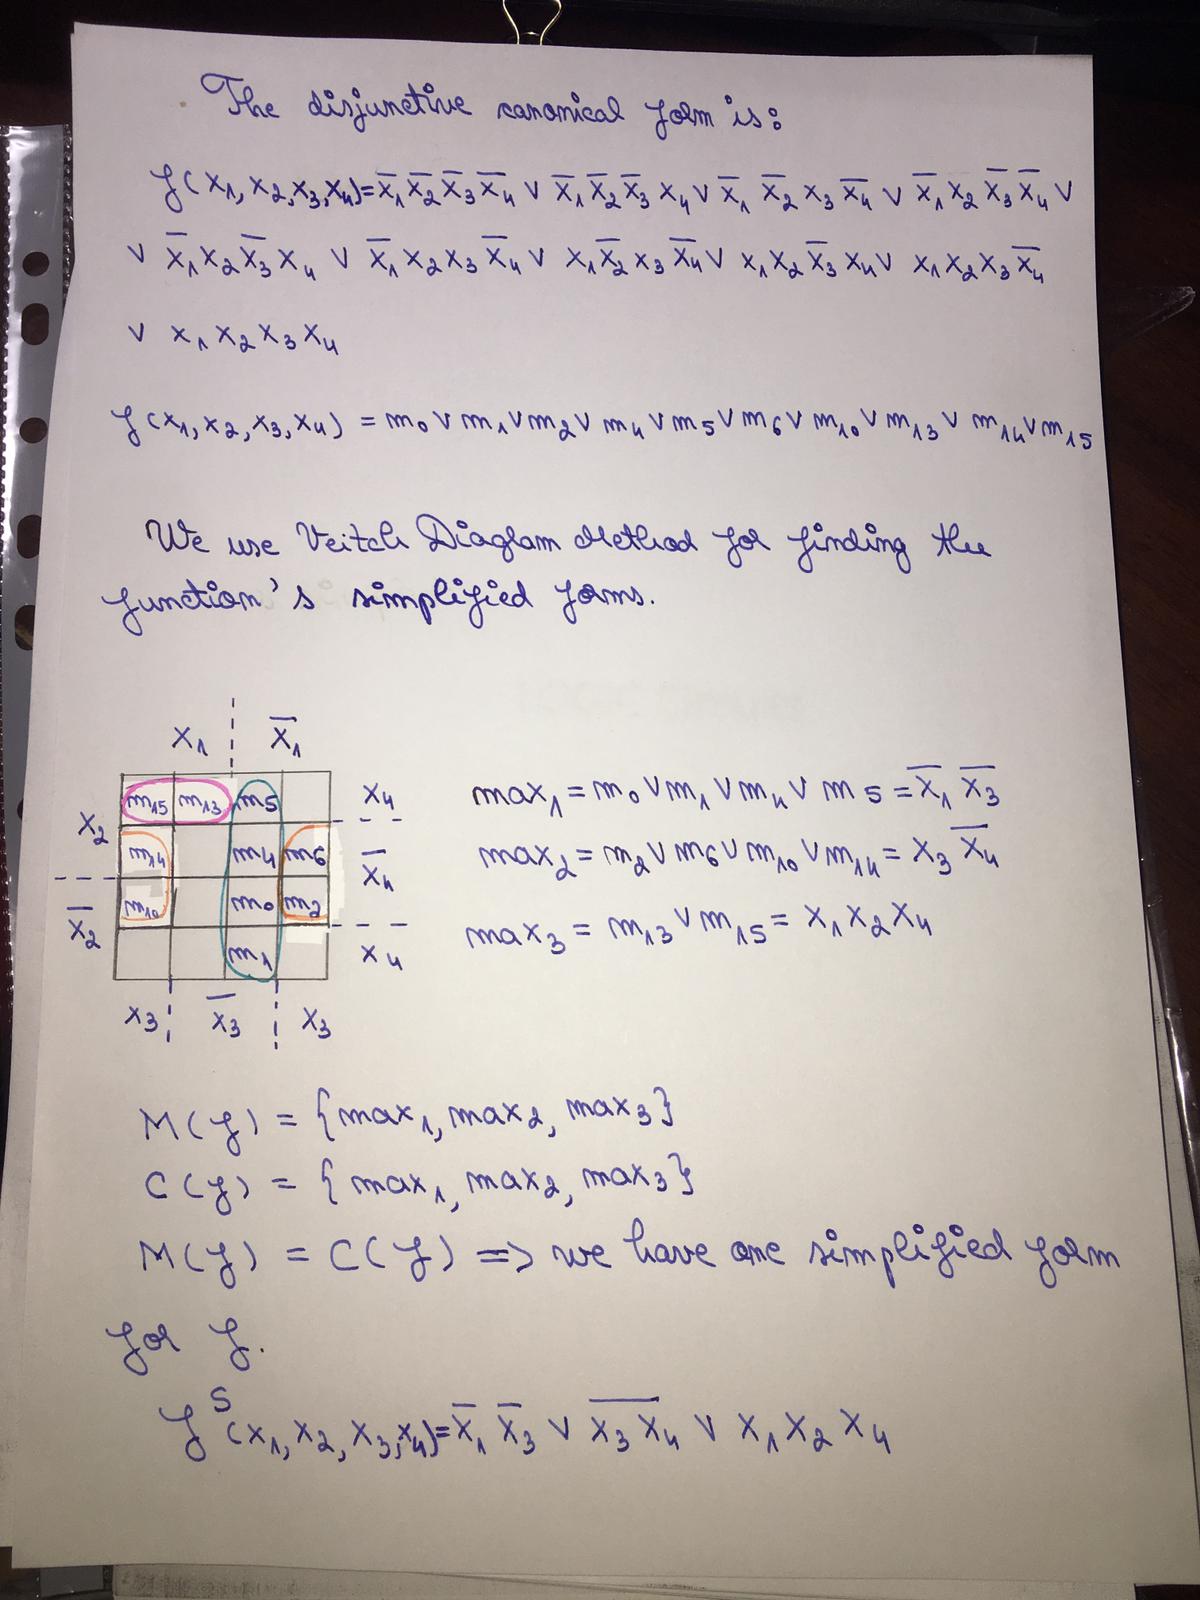 The disjunctive canonical form is:
f(x₁, x₂, x₃, x₄) = x̅₁ x̅₂ x̅₃ x̅₄ ∨ x̅₁ x̅₂ x̅₃ x₄ ∨ x̅₁ x̅₂ x₃ x̅₄ ∨ x̅₁ x₂ x̅₃ x̅₄ ∨
∨ x̅₁ x₂ x̅₃ x₄ ∨ x̅₁ x₂ x₃ x̅₄ ∨ x₁ x̅₂ x₃ x̅₄ ∨ x₁ x₂ x̅₃ x₄ ∨ x₁ x₂ x₃ x̅₄
∨ x₁ x₂ x₃ x₄
f(x₁, x₂, x₃, x₄) = m₀ ∨ m₁ ∨ m₂ ∨ m₄ ∨ m₅ ∨ m₆ ∨ m₁₀ ∨ m₁₃ ∨ m₁₄ ∨ m₁₅
We use Veitch Diagram Method for finding the
function's simplified forms.
x₁ x̅₁
m₁₅ m₁₃ m₅ x₄
x₂
m₁₄ m₄ m₆ x̅₄
m₁₀ m₀ m₂
x̅₂
m₁ x₄
x₃ x̅₃ x₃
max₁ = m₀ ∨ m₁ ∨ m₄ ∨ m₅ = x̅₁ x̅₃
max₂ = m₂ ∨ m₆ ∨ m₁₀ ∨ m₁₄ = x₃ x̅₄
max₃ = m₁₃ ∨ m₁₅ = x₁ x₂ x₄
M(f) = {max₁, max₂, max₃}
C(f) = {max₁, max₂, max₃}
M(f) = C(f) => we have one simplified form
for f.
fˢ(x₁, x₂, x₃, x₄) = x̅₁ x̅₃ ∨ x̅₃ x̅₄ ∨ x₁ x₂ x₄